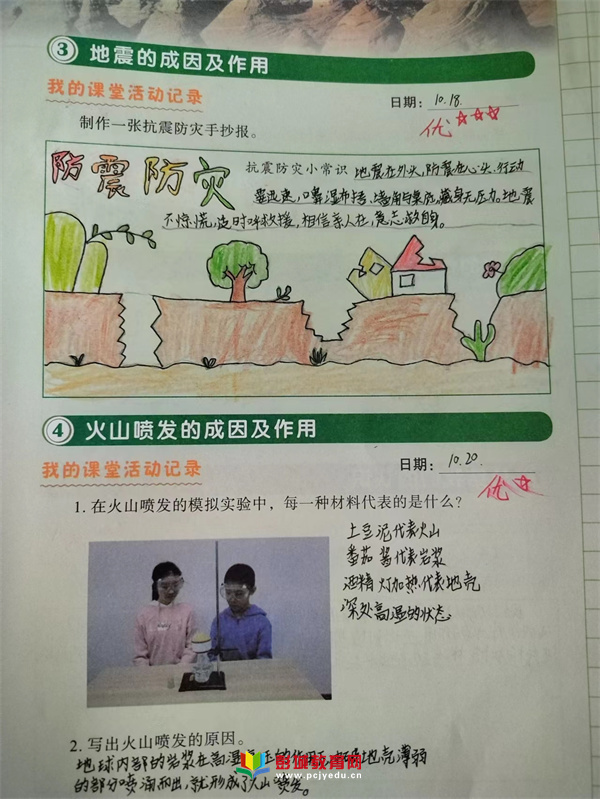 3 地震的成因及作用
我的课堂活动记录
日期: 10.18.
优
制作一张抗震防灾手抄报。
防震防灾
抗震防灾小常识 地震在外头,防震在心头.行动
要迅速,口鼻湿布掩,墙角与桌底,藏身无压力。地震
不惊慌,适时呼救援,相信亲人在,意志救自身。
4 火山喷发的成因及作用
我的课堂活动记录
日期: 10.20.
优
1. 在火山喷发的模拟实验中,每一种材料代表的是什么?
土豆泥代表火山
番茄酱代表岩浆
酒精灯加热代表地壳
深处高温的状态
2. 写出火山喷发的原因。
地球内部的岩浆在高温 的作用 地壳薄弱
的部分喷涌而出,就形成了火山喷发。
彭健教育网
www.pcjyedu.cn